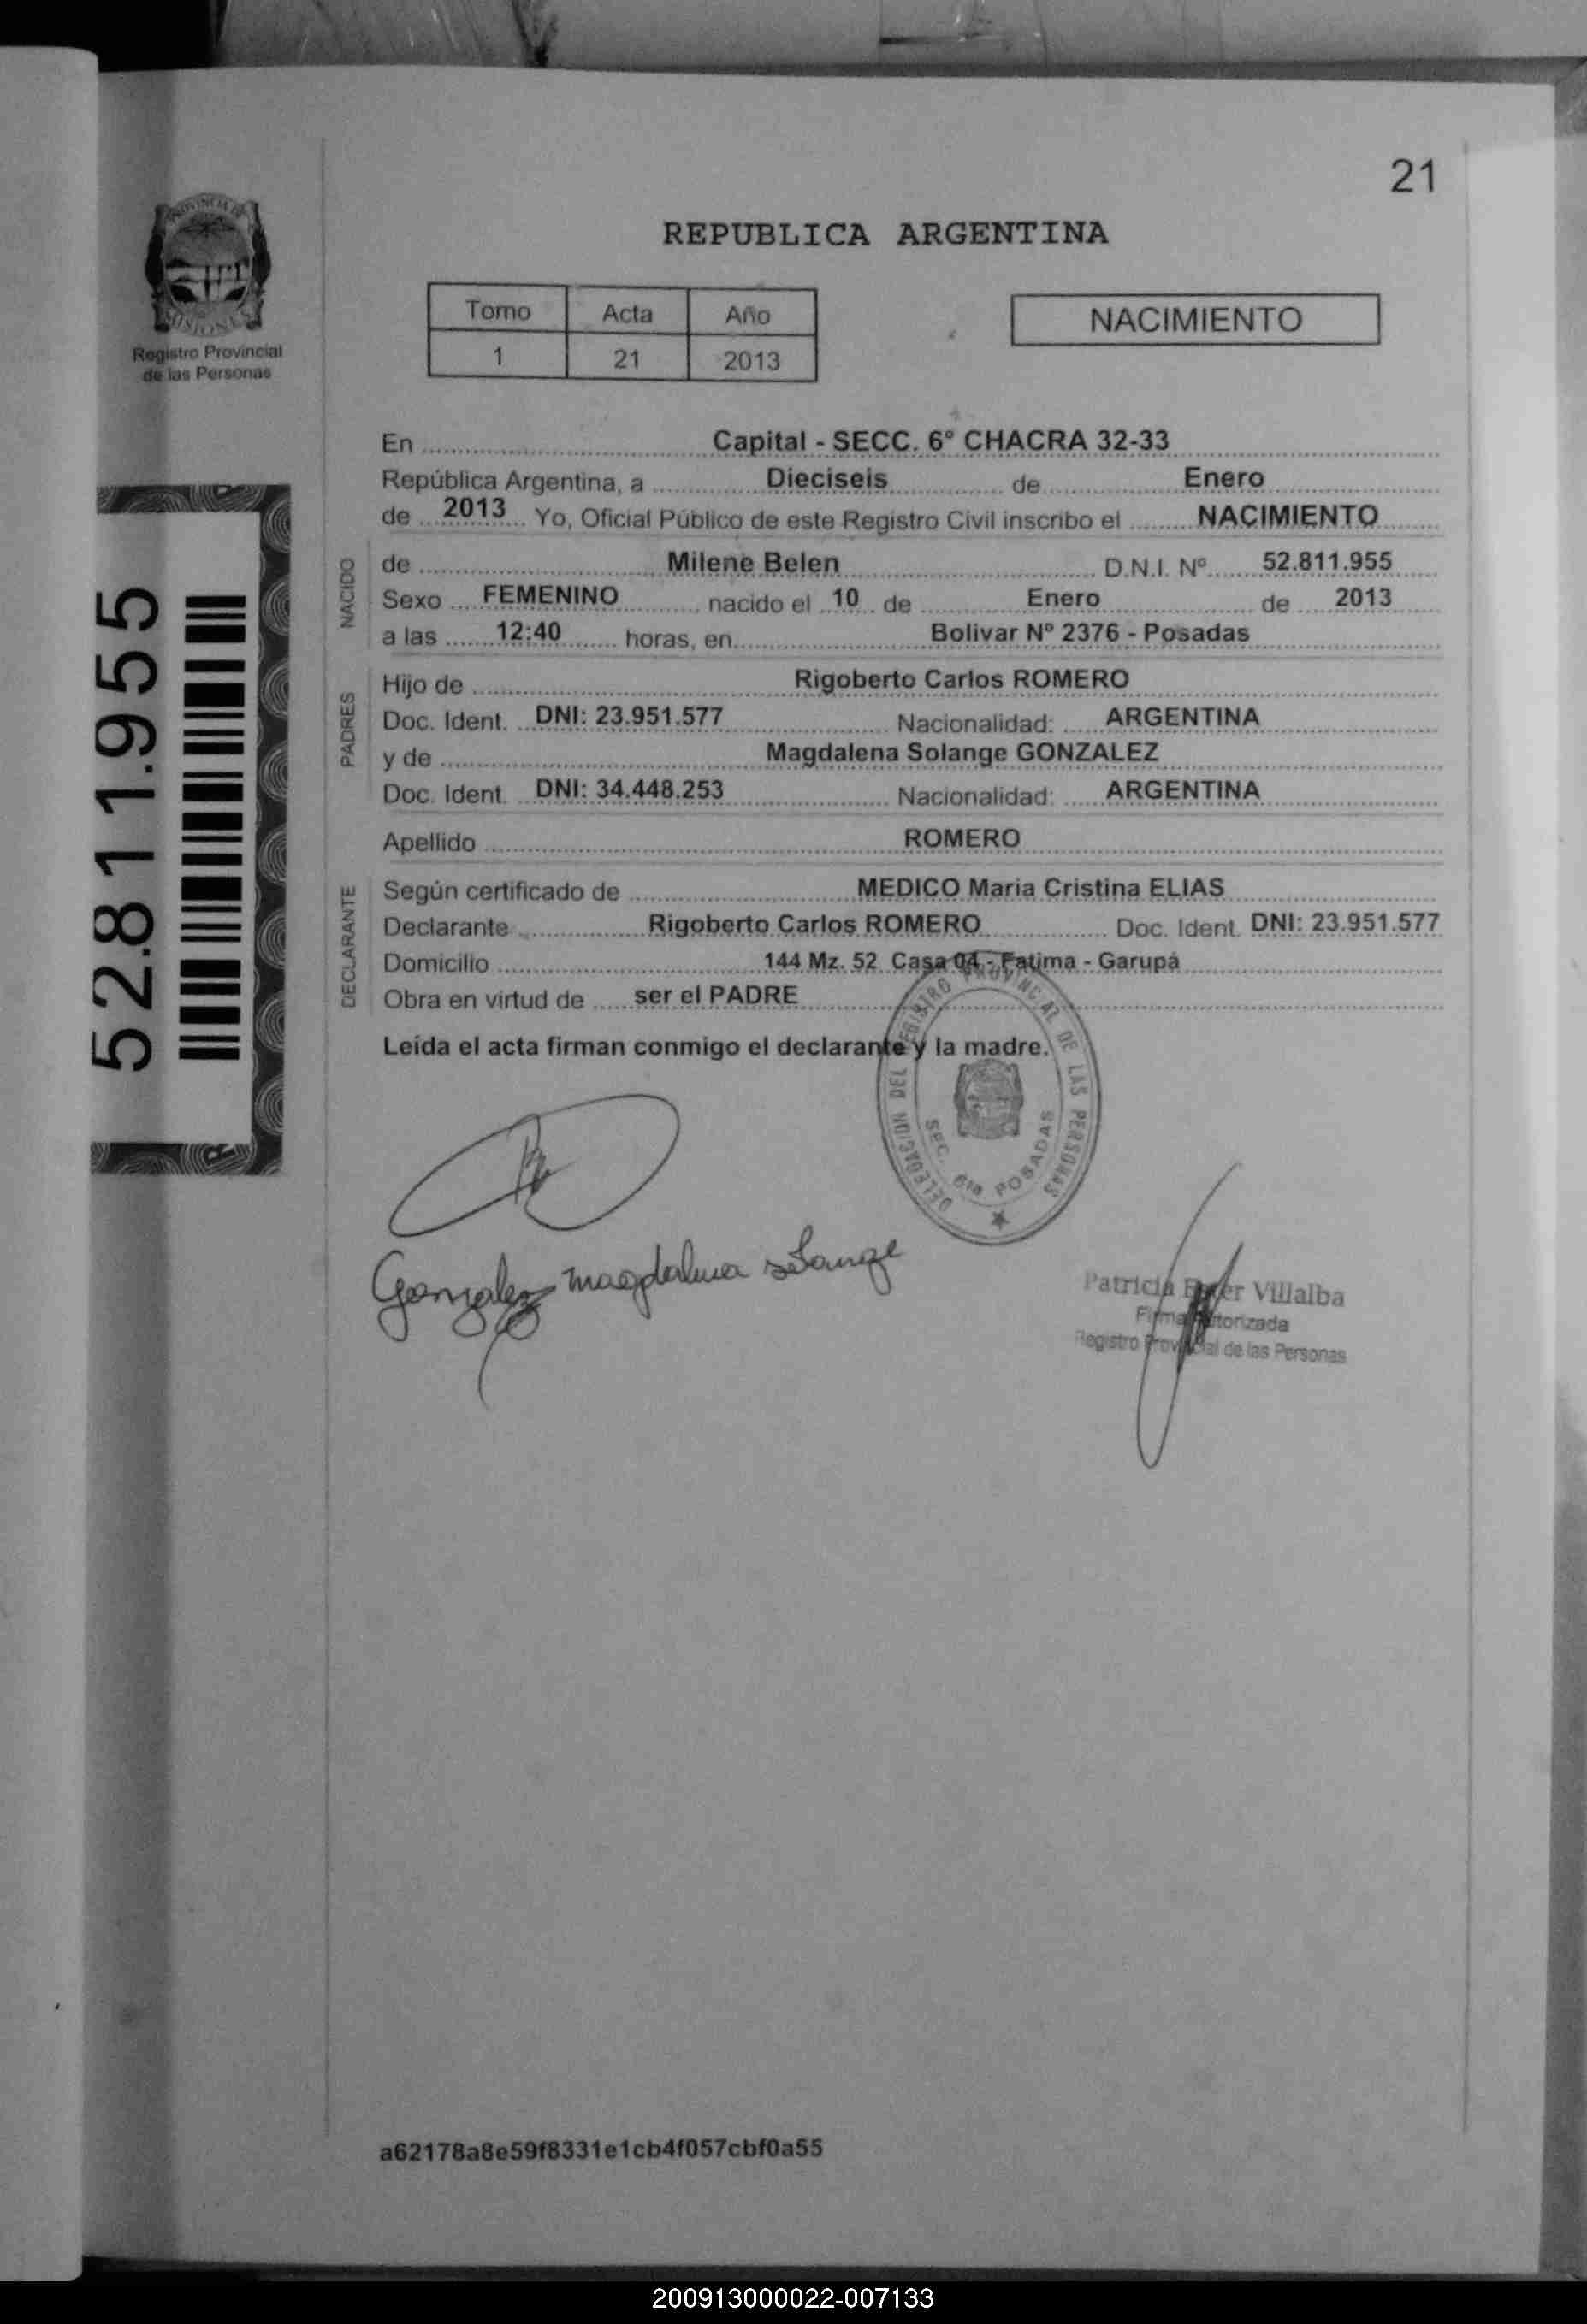 21
PROVINCIA DE
MISIONES
Registro Provincial
de las Personas
REPUBLICA ARGENTINA
Tomo Acta Año
1 21 2013
NACIMIENTO
52.811.955
En Capital - SECC. 6º CHACRA 32-33
República Argentina, a Dieciseis de Enero
de 2013 Yo, Oficial Público de este Registro Civil inscribo el NACIMIENTO
NACIDO
de Milene Belen D.N.I. Nº 52.811.955
Sexo FEMENINO nacido el 10 de Enero de 2013
a las 12:40 horas, en Bolivar Nº 2376 - Posadas
PADRES
Hijo de Rigoberto Carlos ROMERO
Doc. Ident. DNI: 23.951.577 Nacionalidad: ARGENTINA
y de Magdalena Solange GONZALEZ
Doc. Ident. DNI: 34.448.253 Nacionalidad: ARGENTINA
Apellido ROMERO
DECLARANTE
Según certificado de MEDICO Maria Cristina ELIAS
Declarante Rigoberto Carlos ROMERO Doc. Ident. DNI: 23.951.577
Domicilio 144 Mz. 52 Casa 04 - Fatima - Garupá
Obra en virtud de ser el PADRE
Leída el acta firman conmigo el declarante y la madre.
DELEGACION DEL REGISTRO PROVINCIAL DE LAS PERSONAS
SEC. 6ta POSADAS
Gonzalez Magdalena Solange
Patricia Villalba
Firma Autorizada
Registro Provincial de las Personas
a62178a8e59f8331e1cb4f057cbf0a55
200913000022-007133